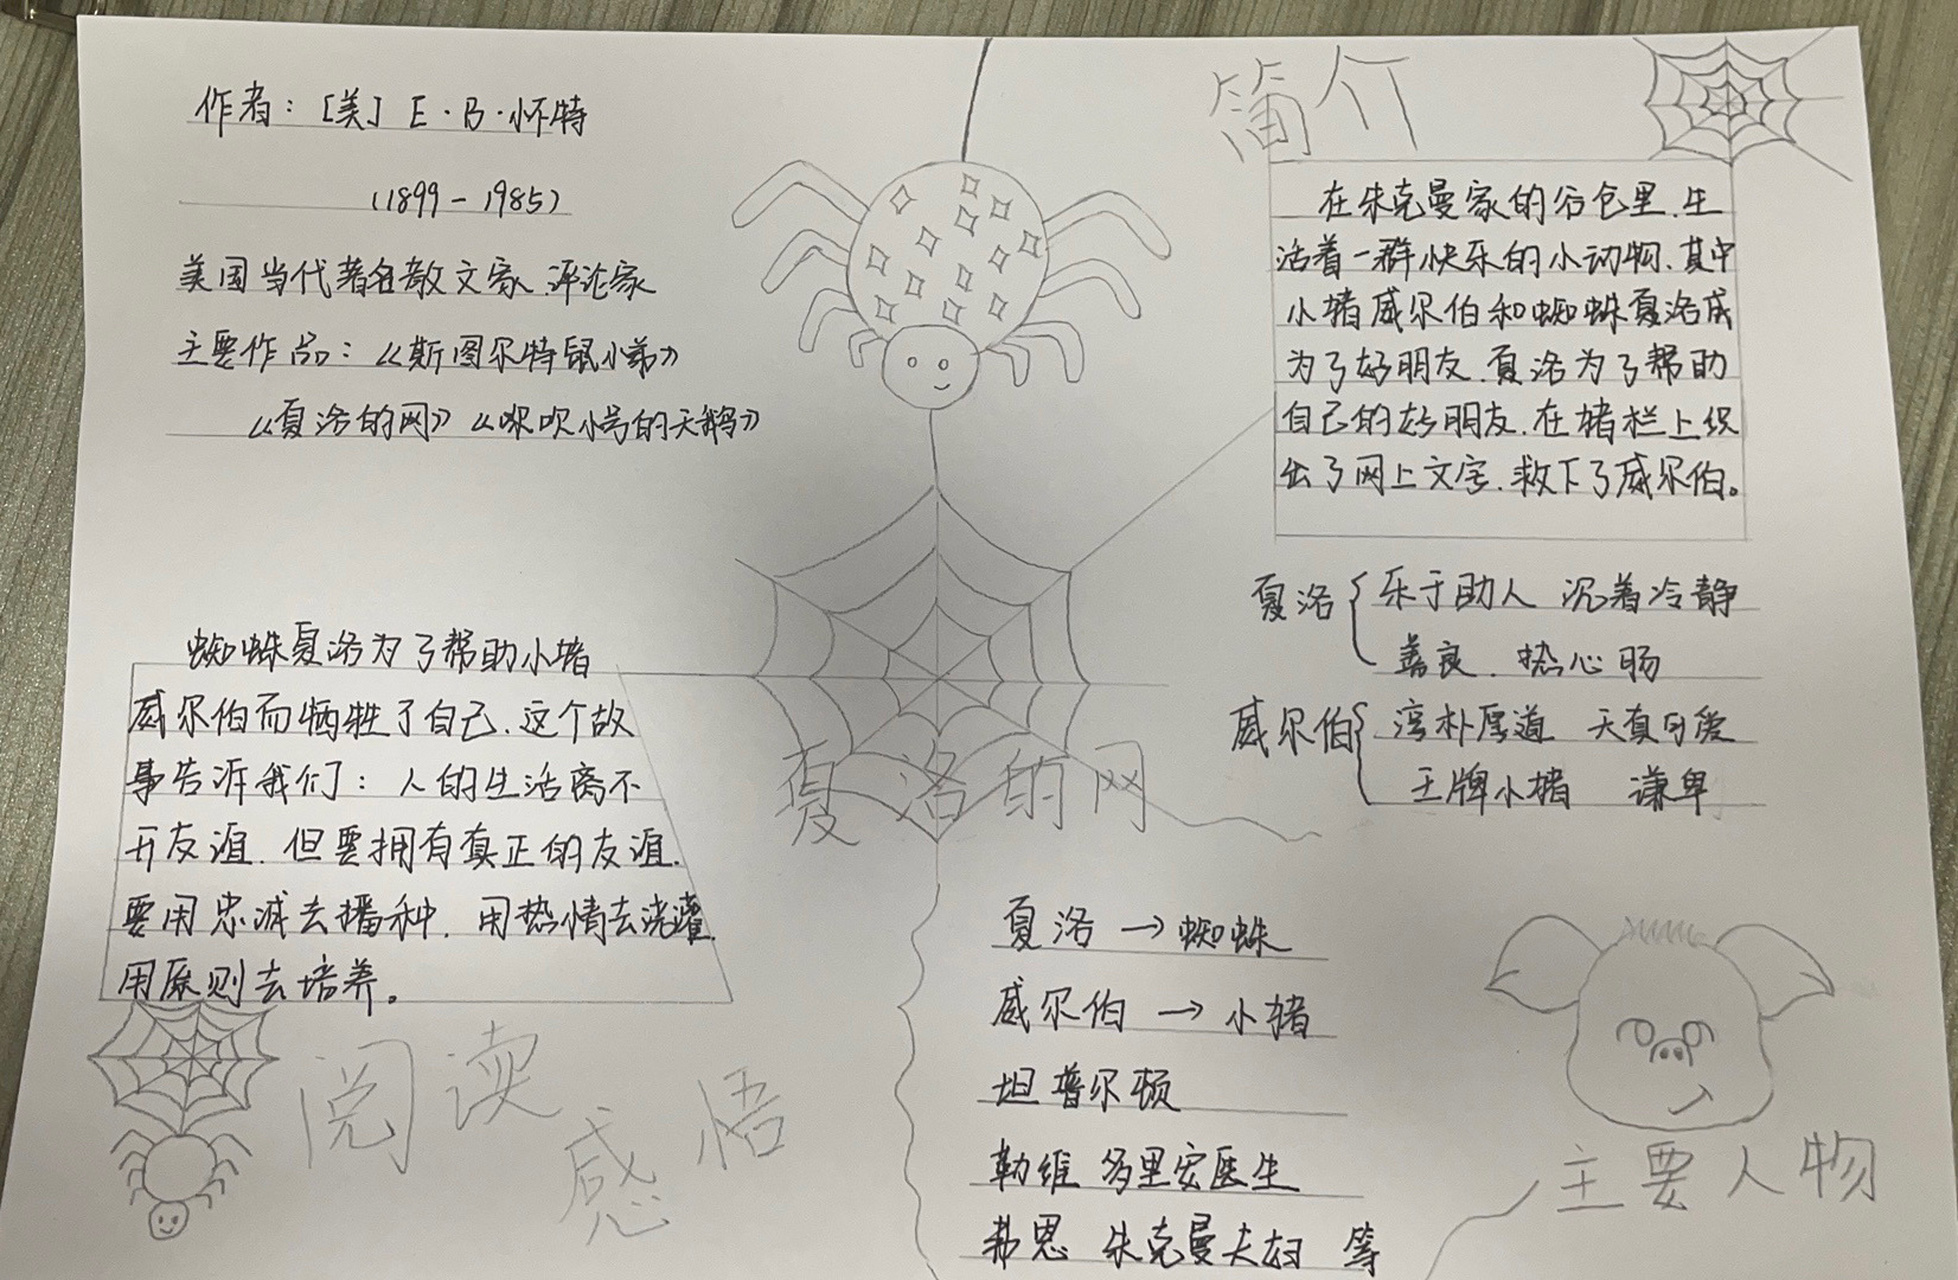 作者：[美] E·B·怀特
(1899-1985)
美国当代著名散文家、评论家
主要作品：《斯图尔特鼠小弟》
《夏洛的网》《吹吹小号的天鹅》
简介
在朱克曼家的谷仓里、生
活着一群快乐的小动物、其中
小猪威尔伯和蜘蛛夏洛成
为了好朋友、夏洛为了帮助
自己的好朋友、在猪栏上织
出了网上文字、救下了威尔伯。
夏洛 { 乐于助人 沉着冷静
善良、热心肠
威尔伯 { 淳朴厚道 天真可爱
王牌小猪 谦卑
夏洛的网
蜘蛛夏洛为了帮助小猪
威尔伯而牺牲了自己、这个故
事告诉我们：人的生活离不
开友谊、但要拥有真正的友谊、
要用忠诚去播种、用热情去浇灌、
用原则去培养。
阅读感悟
夏洛→蜘蛛
威尔伯→小猪
坦普尔顿
勒维 多里安医生
弗恩 朱克曼夫妇 等
主要人物